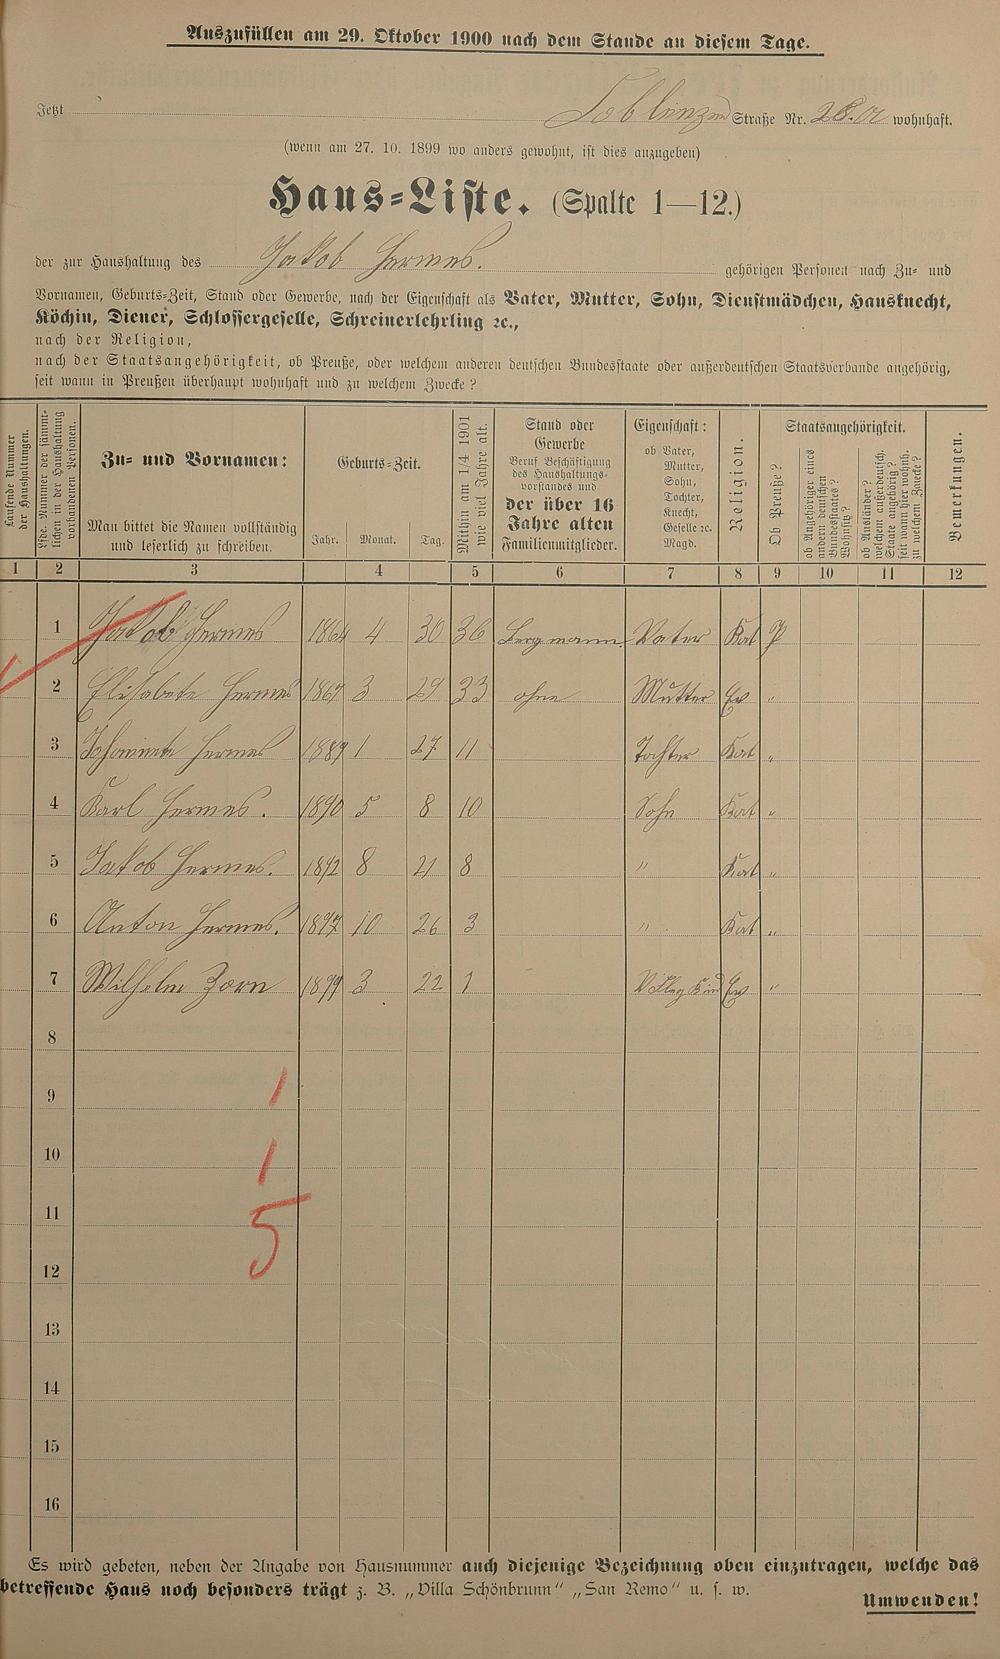 Auszufüllen am 29. Oktober 1900 nach dem Stande an diesem Tage.
Jetzt Coblenzer Straße Nr. 28.a wohnhaft.
(wenn am 27. 10. 1899 wo anders gewohnt, ist dies anzugeben)
Haus-Liste. (Spalte 1—12.)
der zur Haushaltung des Jakob Hermes. gehörigen Personen nach Zu- und
Vornamen, Geburts-Zeit, Stand oder Gewerbe, nach der Eigenschaft als Vater, Mutter, Sohn, Dienstmädchen, Hausknecht,
Köchin, Diener, Schlossergeselle, Schreinerlehrling ꝛc.,
nach der Religion,
nach der Staatsangehörigkeit, ob Preuße, oder welchem anderen deutschen Bundesstaate oder außerdeutschen Staatsverbande angehörig,
seit wann in Preußen überhaupt wohnhaft und zu welchem Zwecke?
Laufende Nummer
der Haushaltungen.
Lfde. Nummer der sämmt-
lichen in der Haushaltung
vorhandenen Personen.
Zu- und Vornamen:
Man bittet die Namen vollständig
und leserlich zu schreiben.
Geburts-Zeit.
Jahr. Monat. Tag.
Mithin am 1/4 1901
wie viel Jahre alt.
Stand oder
Gewerbe
Beruf Beschäftigung
des Haushaltungs-
vorstandes und
der über 16
Jahre alten
Familienmitglieder.
Eigenschaft:
ob Vater,
Mutter,
Sohn,
Tochter,
Knecht,
Geselle ꝛc.
Magd.
Religion.
Staatsangehörigkeit.
Ob Preuße?
ob Angehöriger eines
andern deutschen
Bundesstaates?
Wohnsitz?
ob Ausländer?
welchem außerdeutsch.
Staate angehörig?
seit wann hier wohnh.
zu welchem Zwecke?
Bemerkungen.
1 2 3 4 5 6 7 8 9 10 11 12
1 Jakob Hermes 1864 4 30 36 Bergmann. Vater Kat P
2 Elisabete Hermes 1867 3 29 33 ohne Mutter Ev "
3 Hermes 1889 1 27 11 Tochter Kat "
4 Karl Hermes. 1890 5 8 10 Sohn Kat "
5 Jakob Hermes. 1892 8 21 8 " Kat "
6 Anton Hermes. 1897 10 26 3 " Kat "
7 Wilhelm Zorn 1899 3 22 1 Ev "
8
9 1
10 1
11 5
12
13
14
15
16
Es wird gebeten, neben der Angabe von Hausnummer auch diejenige Bezeichnung oben einzutragen, welche das
betreffende Haus noch besonders trägt z. B. „Villa Schönbrunn“ „San Remo“ u. s. w.
Umwenden!